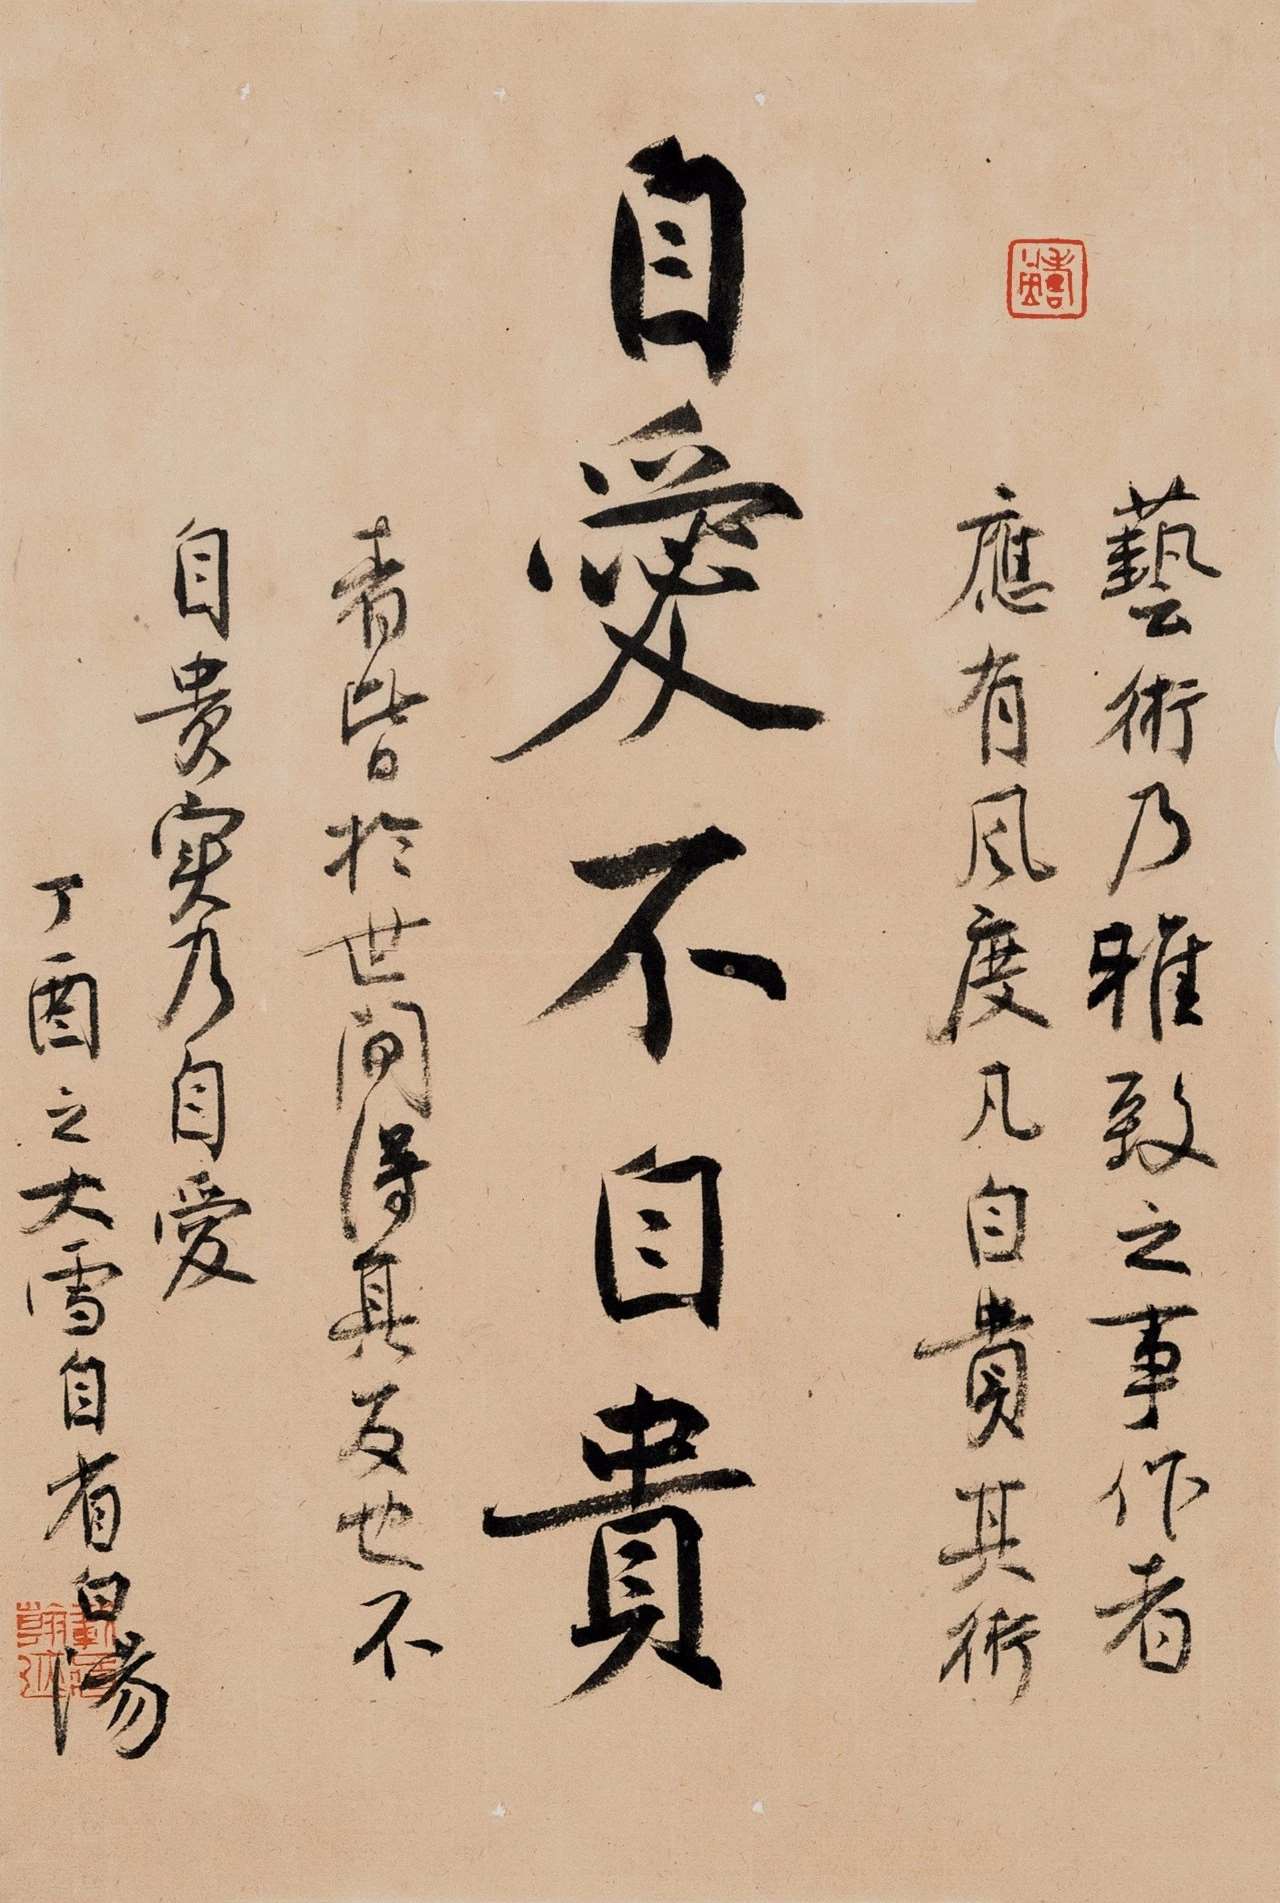 藝術乃雅致之事作者
應有風度凡自貴其術
自愛不自貴
者皆於世間得其反也不
自貴實乃自愛
丁酉之大雪自省白陽